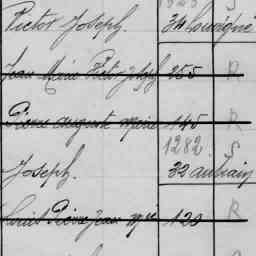 Victor Joseph. 34 Louvigné
Jean Marie Victor Joseph 255 R
Pierre Auguste Marie 145 R
1282 S
Joseph. 32 aubain
Louis Pierre Jean Mie 120 R